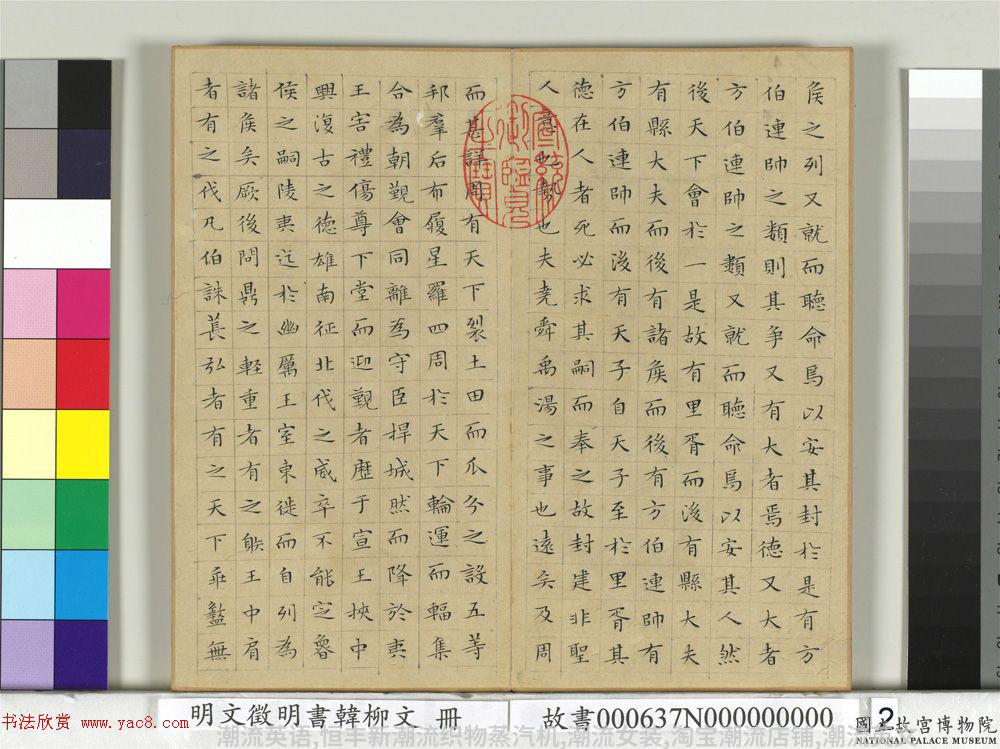 侯之列又就而聽命焉以安其封於是有方
伯連帥之類則其争又有大者焉德又大者
方伯連帥之類又就而聽命焉以安其人然
後天下會於一是故有里胥而後有縣大夫
有縣大夫而後有諸侯而後有方伯連帥有
方伯連帥而後有天子自天子至於里胥其
德在人者死必求其嗣而奉之故封建非聖
人意也勢也夫堯舜禹湯之事也遠矣及周
而甚詳周有天下裂土田而瓜分之設五等
邦羣后布履星羅四周於天下輪運而輻集
合為朝覲會同離為守臣捍城然而降於夷
王害禮傷尊下堂而迎覲者歷于宣王挾中
興復古之德雄南征北伐之威卒不能定魯
侯之嗣陵夷迄於幽厲王室東徙而自列為
諸侯矣厥後問鼎之輕重者有之射王中肩
者有之伐凡伯誅萇弘者有之天下乖盭無
明文徵明書韓柳文 冊
故書000637N000000000
2
國立故宮博物院
NATIONAL PALACE MUSEUM
书法欣赏 www.yac8.com
潮流英语,恒丰新潮流织物蒸汽机,潮流女装,淘宝潮流店铺,潮